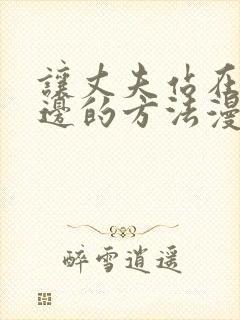 讓丈夫佔在
邊的方法漫
醉雪逍遥